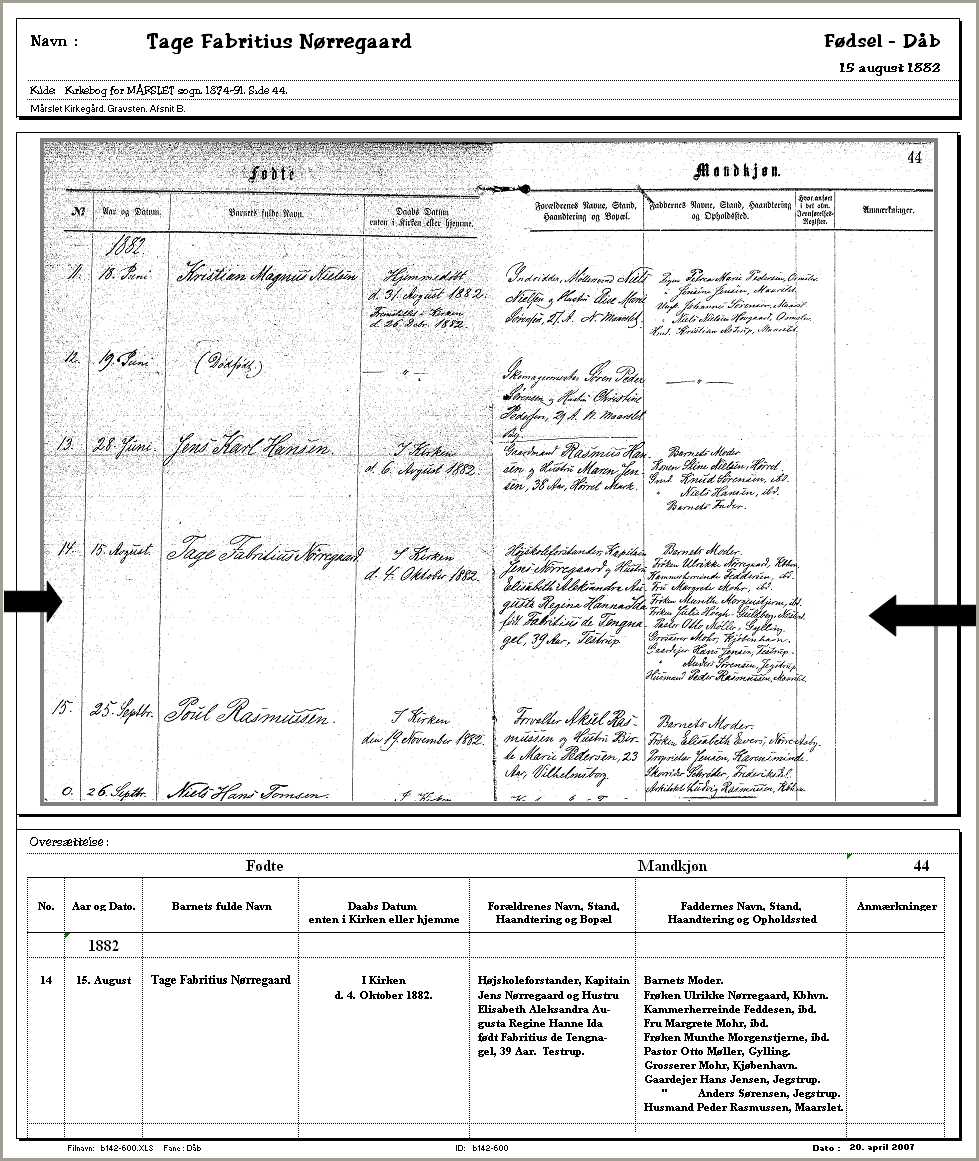 Navn : Tage Fabritius Nørregaard Fødsel - Dåb
15 august 1882
Kilde Kirkebog for MÅRSLET sogn. 1874-91. Side 44.
Mårslet Kirkegård. Gravsten. Afsnit B.
44
Fødte Mandkjøn.
No Aar og Datum. Barnets fulde Navn. Daabs Datum enten i Kirken eller hjemme. Forældrenes Navne, Stand, Haandtering og Bopæl. Faddernes Navne, Stand, Haandtering og Opholdsted. Hvor anført i det alm. Jevnførelses-Register. Anmærkninger.
1882.
11. 18. Juni Kristian Magnus Nielsen Hjemmedøbt
d. 31. August 1882.
Fremstillet i Kirken
d. 26. Debr. 1882.
Indsidder, Møllesvend Niels
Nielsen og Hustru Marie
Sørensen, 27 A. N. Maarslet.
Petrea Marie Pedersen,
" Jensine Jensen, Maarslet.
Ungk. Johannes Sørensen, Maarslet
" Niels Nielsen
Kristian Astrup, Maarslet.
12. 19. Juni (Dødfødt) — " —
Skomagermester Søren Peder
Sørensen og Hustru Christine
Pedersen, 29 A. N. Maarslet
By.
— " —
13. 28. Juni. Jens Karl Hansen. I Kirken
d. 6. August 1882.
Gaardmand Rasmus Han-
sen og Hustru Maren Jen-
sen, 38 Aar, Hørret Mark.
Barnets Moder
Konen Stine Nielsen, Hørret.
Gmd. Knud Sørensen, ibd.
" Niels Hansen, ibd.
Barnets Fader.
14. 15. August. Tage Fabritius Nørregaard I Kirken
d. 4. Oktober 1882.
Højskoleforstander, Kapitain
Jens Nørregaard og Hustru
Elisabeth Aleksandra Au-
gusta Regina Hanna Ida
født Fabritius de Tengna-
gel, 39 Aar, Testrup
Barnets Moder.
Frøken Ulrikke Nørregaard, Kbhvn.
Kammerherreinde Feddersen, ibd.
Fru Margrete Mohr, ibd.
Frøken Munthe Morgenstjerne, ibd.
Frøken Julie Høegh-Guldberg,
Pastor Otto Møller, Gylling.
Grosserer Mohr, Kjøbenhavn.
Gaardejer Hans Jensen, Testrup.
" Anders Sørensen, Jegstrup
Husmand Peder Rasmussen, Maarslet.
15. 25. Septbr. Poul Rasmussen. I Kirken
den 19. November 1882.
Forvalter Aksel Ras-
mussen og Hustru Bir-
te Marie Pedersen, 23
Aar, Vilhelmsborg
Barnets Moder.
Frøken Elisabeth Evers, Nørre Aaby.
Jensen, Havensminde.
Skovrider Schrøder,
Arkitekt Ludvig Rasmussen, Kbhvn
26. Septbr. Niels Hans Tomsen. I Kirken
Oversættelse :
Fødte Mandkjøn 44
No. Aar og Dato. Barnets fulde Navn Daabs Datum Forældrenes Navn, Stand, Faddernes Navn, Stand, Anmærkninger
enten i Kirken eller hjemme Haandtering og Bopæl Haandtering og Opholdssted
1882
14 15. August Tage Fabritius Nørregaard I Kirken Højskoleforstander, Kapitain Barnets Moder.
d. 4. Oktober 1882. Jens Nørregaard og Hustru Frøken Ulrikke Nørregaard, Kbhvn.
Elisabeth Aleksandra Au- Kammerherreinde Feddesen, ibd.
gusta Regine Hanne Ida Fru Margrete Mohr, ibd.
født Fabritius de Tengna- Frøken Munthe Morgenstjerne, ibd.
gel, 39 Aar. Testrup. Pastor Otto Møller, Gylling.
Grosserer Mohr, Kjøbenhavn.
Gaardejer Hans Jensen, Jegstrup.
" Anders Sørensen, Jegstrup.
Husmand Peder Rasmussen, Maarslet.
Filnavn: b142-600.XLS Fane : Dåb ID: b142-600 Dato : 20. april 2007